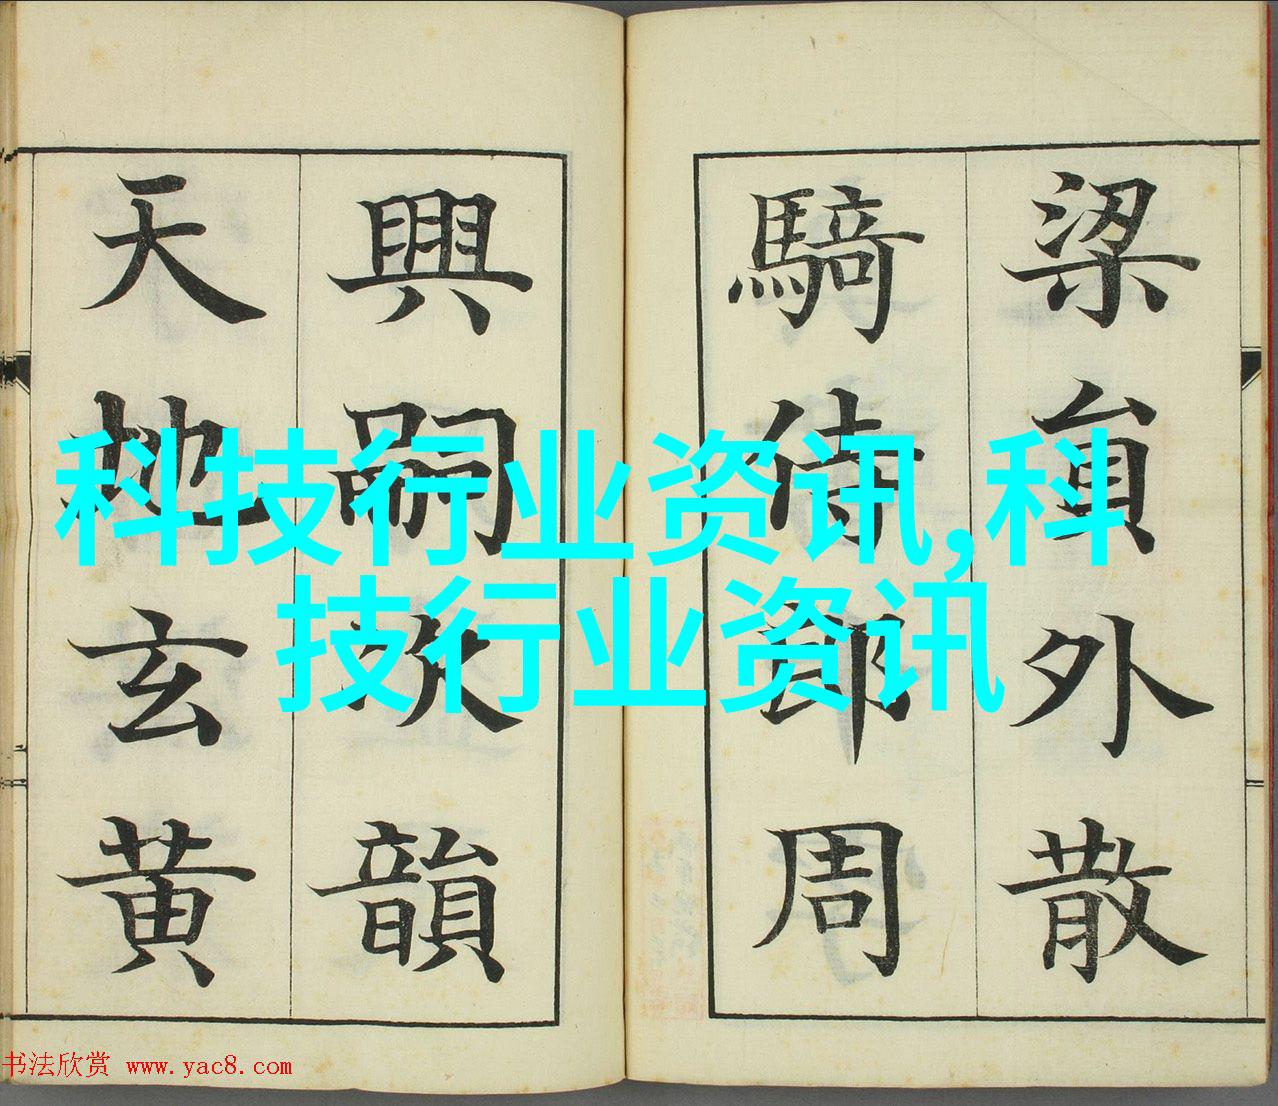 梁貟外散
騎侍郎周
興嗣次韻
天地玄黄
科技行业资讯,科
技行业资讯
书法欣赏 www.yac8.com